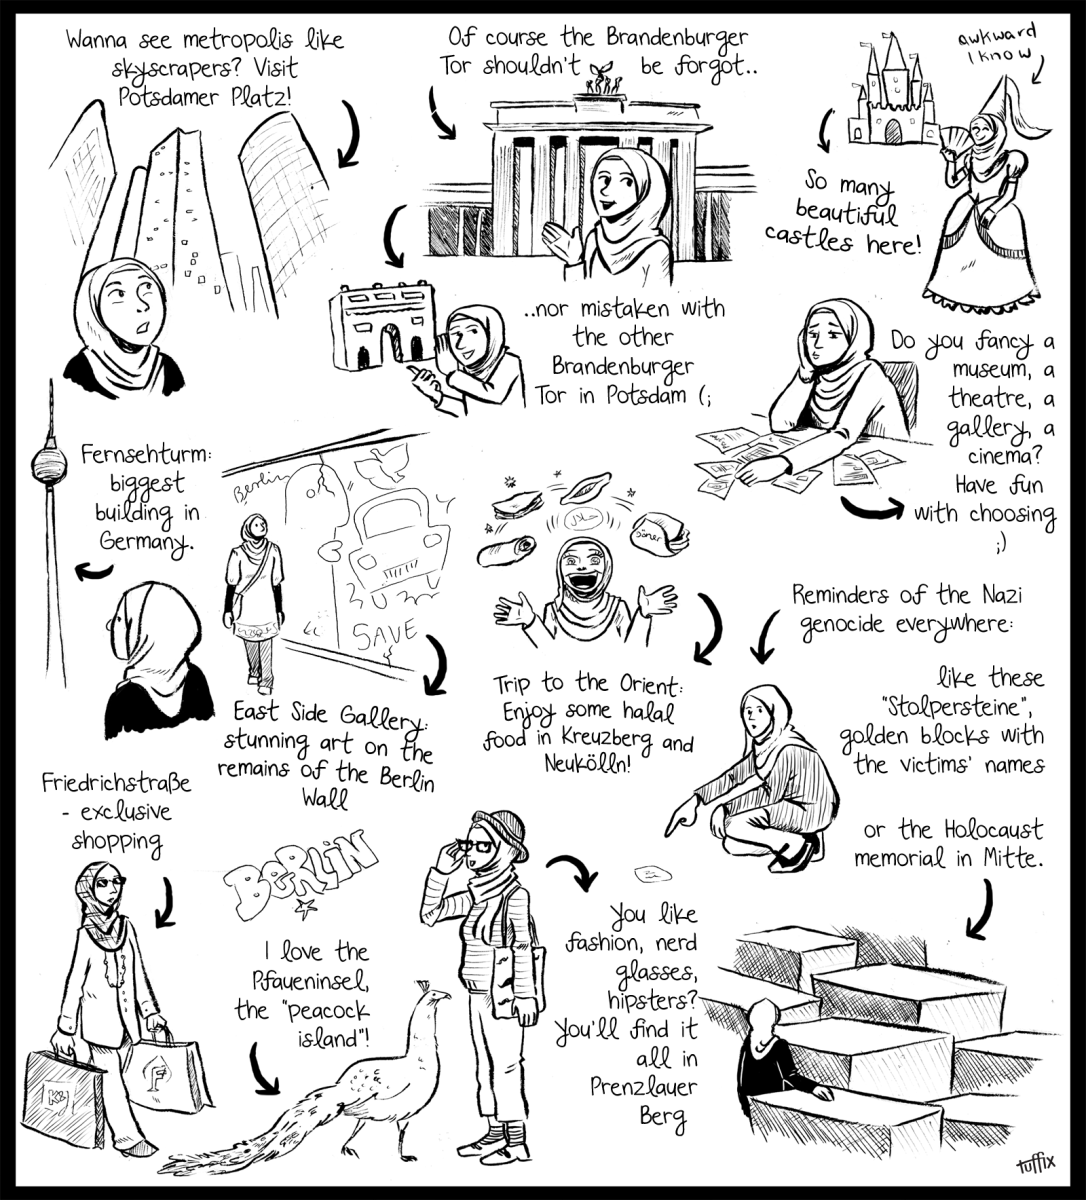 Wanna see metropolis like
skyscrapers? Visit
Potsdamer Platz!
Of course the Brandenburger
Tor shouldn't be forgot..
awkward
I know
So many
beautiful
castles here!
..nor mistaken with
the other
Brandenburger
Tor in Potsdam (;
Do you fancy a
museum, a
theatre, a
gallery, a
cinema?
Have fun
with choosing
;)
Fernsehturm:
biggest
building in
Germany.
Berlin
SAVE
East Side Gallery:
stunning art on the
remains of the Berlin
Wall
Döner
Trip to the Orient:
Enjoy some halal
food in Kreuzberg and
Neukölln!
Reminders of the Nazi
genocide everywhere:
like these
"Stolpersteine",
golden blocks with
the victims' names
or the Holocaust
memorial in Mitte.
Friedrichstraße
- exclusive
shopping
F
BERLiN
I love the
Pfaueninsel,
the "peacock
island"!
You like
fashion, nerd
glasses,
hipsters?
You'll find it
all in
Prenzlauer
Berg
tuffix